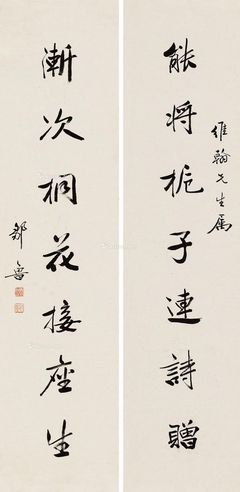 能将栀子連詩贈
維翰先生属
漸次桐花接座生
鄒魯